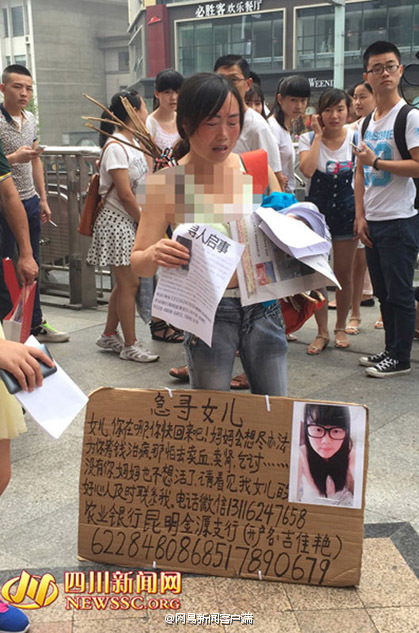 必胜客欢乐餐厅
WEEND
寻人启事
急寻女儿
女儿你在哪?你快回来吧!妈妈会想尽办法
为你筹钱治病那怕去卖血、卖肾、乞讨……
没有你妈妈也不想活了,请看见我女儿的
好心人及时联系我,电话微信13116247658
农业银行昆明金源支行(开户名:吉佳艳)
6228480868517890679
四川新闻网
NEWSSC.ORG
@网易新闻客户端